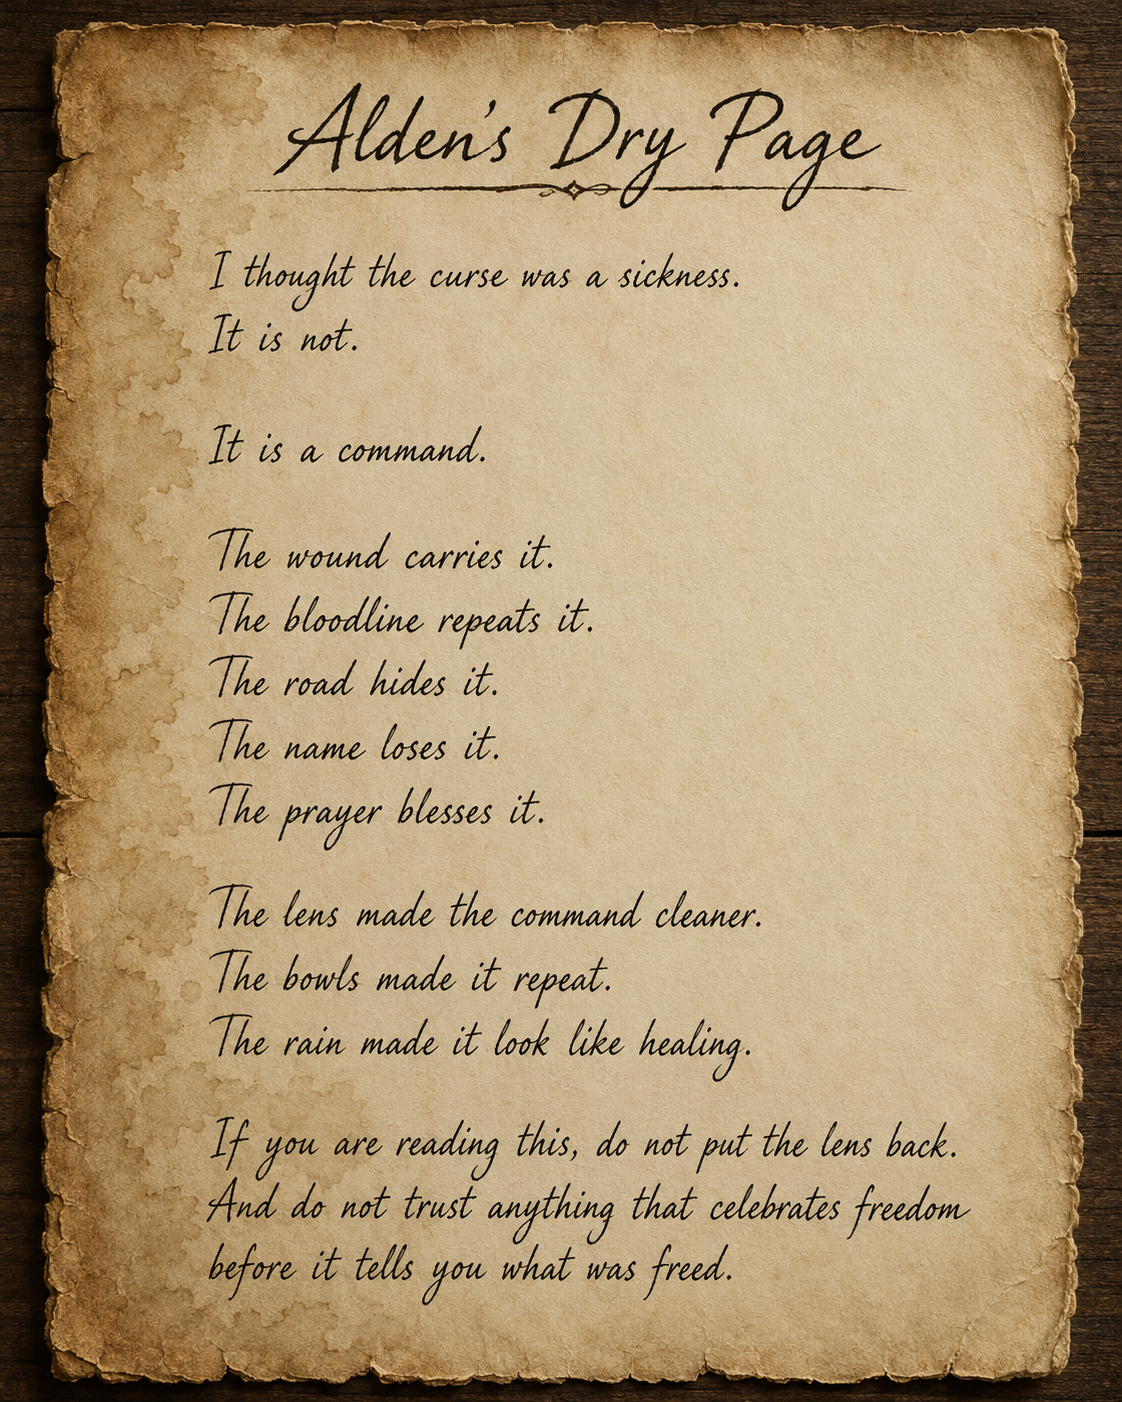 Alden's Dry Page
I thought the curse was a sickness.
It is not.
It is a command.
The wound carries it.
The bloodline repeats it.
The road hides it.
The name loses it.
The prayer blesses it.
The lens made the command cleaner.
The bowls made it repeat.
The rain made it look like healing.
If you are reading this, do not put the lens back.
And do not trust anything that celebrates freedom
before it tells you what was freed.